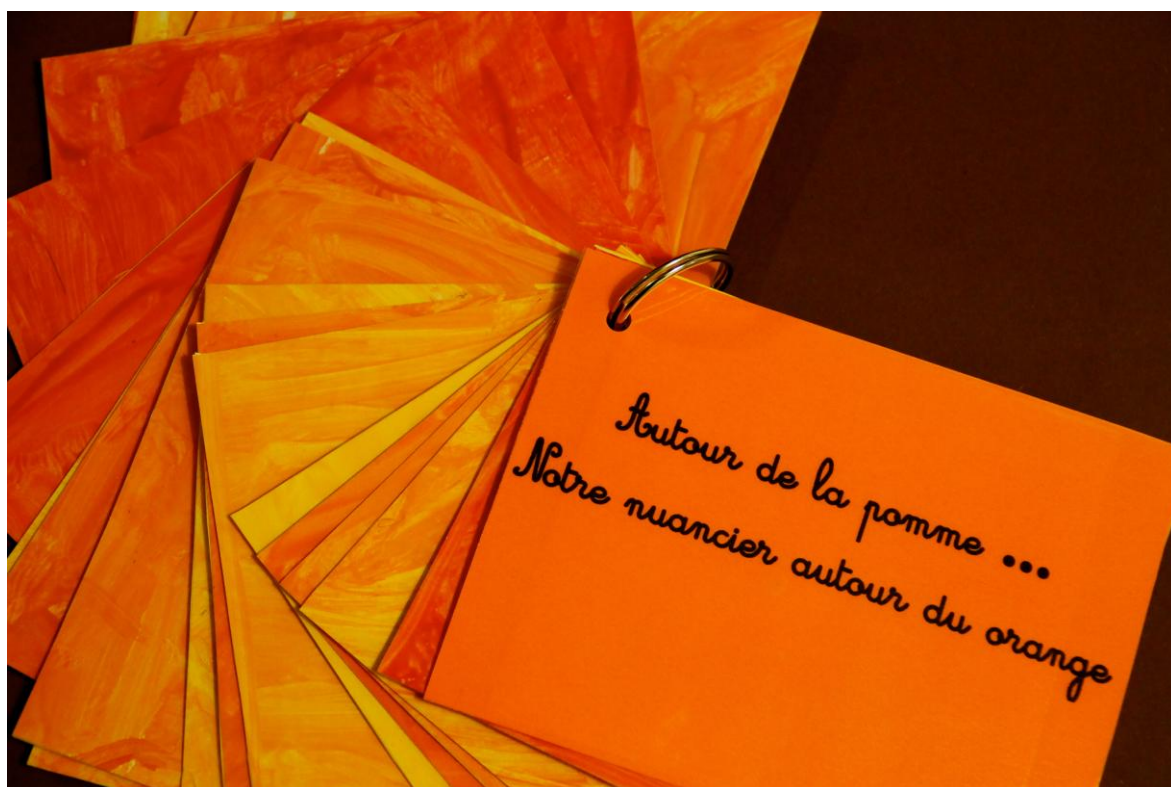 Autour de la pomme ...
Notre nuancier autour du orange